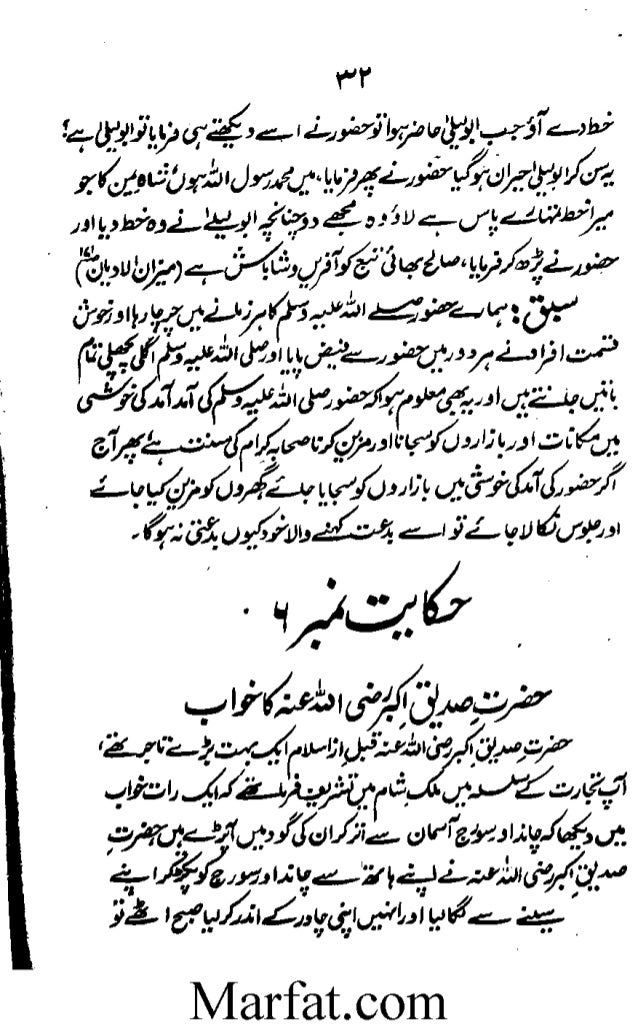 ۳۲
خط دے آؤ جب ابولیلیٰ حاضر ہوا تو حضور نے اسے دیکھتے ہی فرمایا تو ابولیلیٰ ہے؟
یہ سن کر ابولیلیٰ حیران ہو گیا حضور نے پھر فرمایا، میں محمد رسول اللہ ہوں شاہ یمن کا جو
میرا خط تمہارے پاس ہے لاؤ وہ مجھے دو چنانچہ ابولیلےٰ نے وہ خط دیا اور
حضور نے پڑھ کر فرمایا، صالح بھائی تبع کو آفریں و شاباش ہے (میزان الادیان
سبق: ہمارے حضور صلے اللہ علیہ وسلم کا ہر زمانے میں چرچا رہا اور خوش
قسمت افراد نے ہر دور میں حضور سے فیض پایا اور صلی اللہ علیہ وسلم اگلی پچھلی تمام
باتیں جانتے ہیں اور یہ بھی معلوم ہوا کہ حضور صلی اللہ علیہ وسلم کی آمد آمد کی خوشی
میں مکانات اور بازاروں کو سجانا اور مزین کرنا صحابہ کرام کی سنت ہے پھر آج
اگر حضور کی آمد کی خوشی میں بازاروں کو سجایا جائے گھروں کو مزین کیا جائے
اور جلوس نکالا جائے تو اسے بدعت کہنے والا خود کیوں بدعتی نہ ہوگا۔
حکایت نمبر ۶
حضرت صدیقِ اکبر رضی اللہ عنہ کا خواب
حضرت صدیقِ اکبر رضی اللہ عنہ قبل از اسلام ایک بہت بڑے تاجر تھے،
آپ تجارت کے سلسلہ میں ملک شام میں تشریف فرما تھے کہ ایک رات خواب
میں دیکھا کہ چاند اور سورج آسمان سے اتر کر ان کی گود میں آ پڑے ہیں حضرتِ
صدیقِ اکبر رضی اللہ عنہ نے اپنے ہاتھ سے چاند اور سورج کو پکڑ کر اپنے
سینے سے لگا لیا اور انہیں اپنی چادر کے اندر کر لیا صبح اٹھے تو
Marfat.com